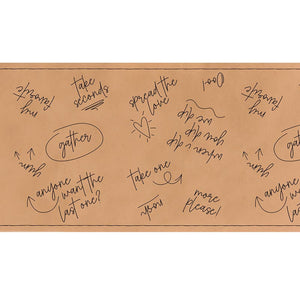 my
favorite
take
seconds
spread the
love
Ooo!
when i dip
you dip
we dip
my
favorite
gather
yum
take one
yum
anyone
want the
last one?
you
more
please!
anyone
want
last